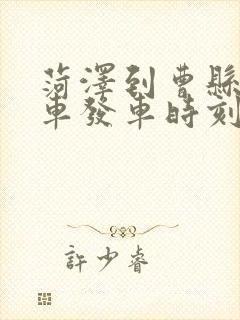 菏澤到曹縣
車發車時刻
許少睿